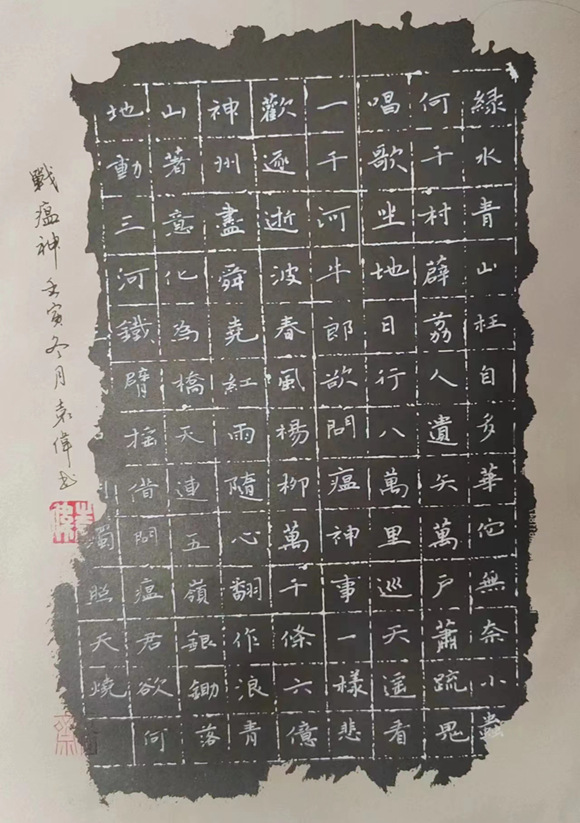 綠水青山枉自多華佗無奈小蟲
何千村薜荔人遺矢萬戶蕭疏鬼
唱歌坐地日行八萬里巡天遙看
一千河牛郎欲問瘟神事一樣悲
歡逐逝波春風楊柳萬千條六億
神州盡舜堯紅雨隨心翻作浪青
山著意化為橋天連五嶺銀鋤落
地動三河鐵臂搖借問瘟君欲何
燭照天燒
戰瘟神 壬寅冬月袁偉书